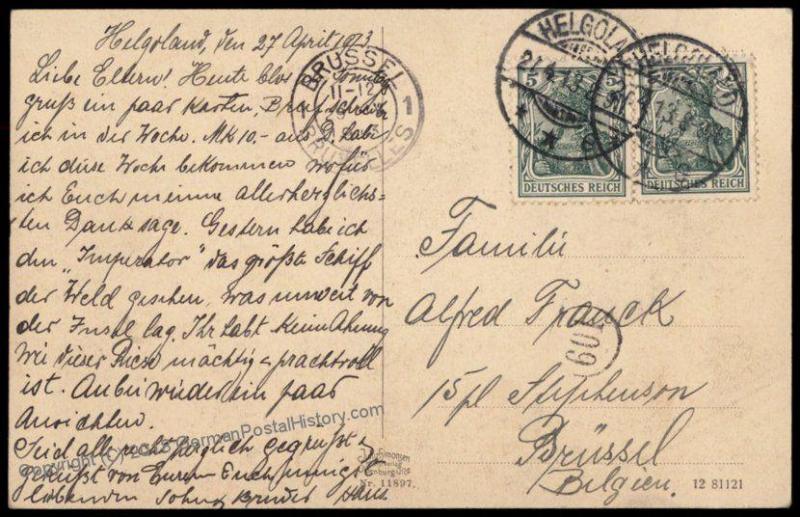 Helgoland, den 27 April 1913
Liebe Eltern! Heute blos Sonntags
gruß ein paar Karten, Brief schreibe
ich in der Woche. MK 10,- aus habe
ich diese Woche bekommen wofür
ich Euch meinne allerherzlichs-
ten Dank sage. Gestern habe ich
den „Imperator" das größte Schiff
der Weld gesehen, was unweit von
der Insel lag. Ihr habt keine Ahnung
wie dieser Riese mächtig & prachtvoll
ist. Anbei wieder ein paar
Ansichten.
Seid alle recht herzlich gegrüßt &
geküßt von Eurem Euch innigst
liebenden Sohn & Bruder Hans
BRÜSSEL
11-12
1
BRUXELLES
HELGOLAND
27.4.13
HELGOLAND
5
DEUTSCHES REICH
DEUTSCHES REICH
Familie
Alfred Franck
15 pl Stephenson
Brüssel
Belgien.
60
Nr. 11897.
12 81121
Copyright © 2015 GermanPostalHistory.com